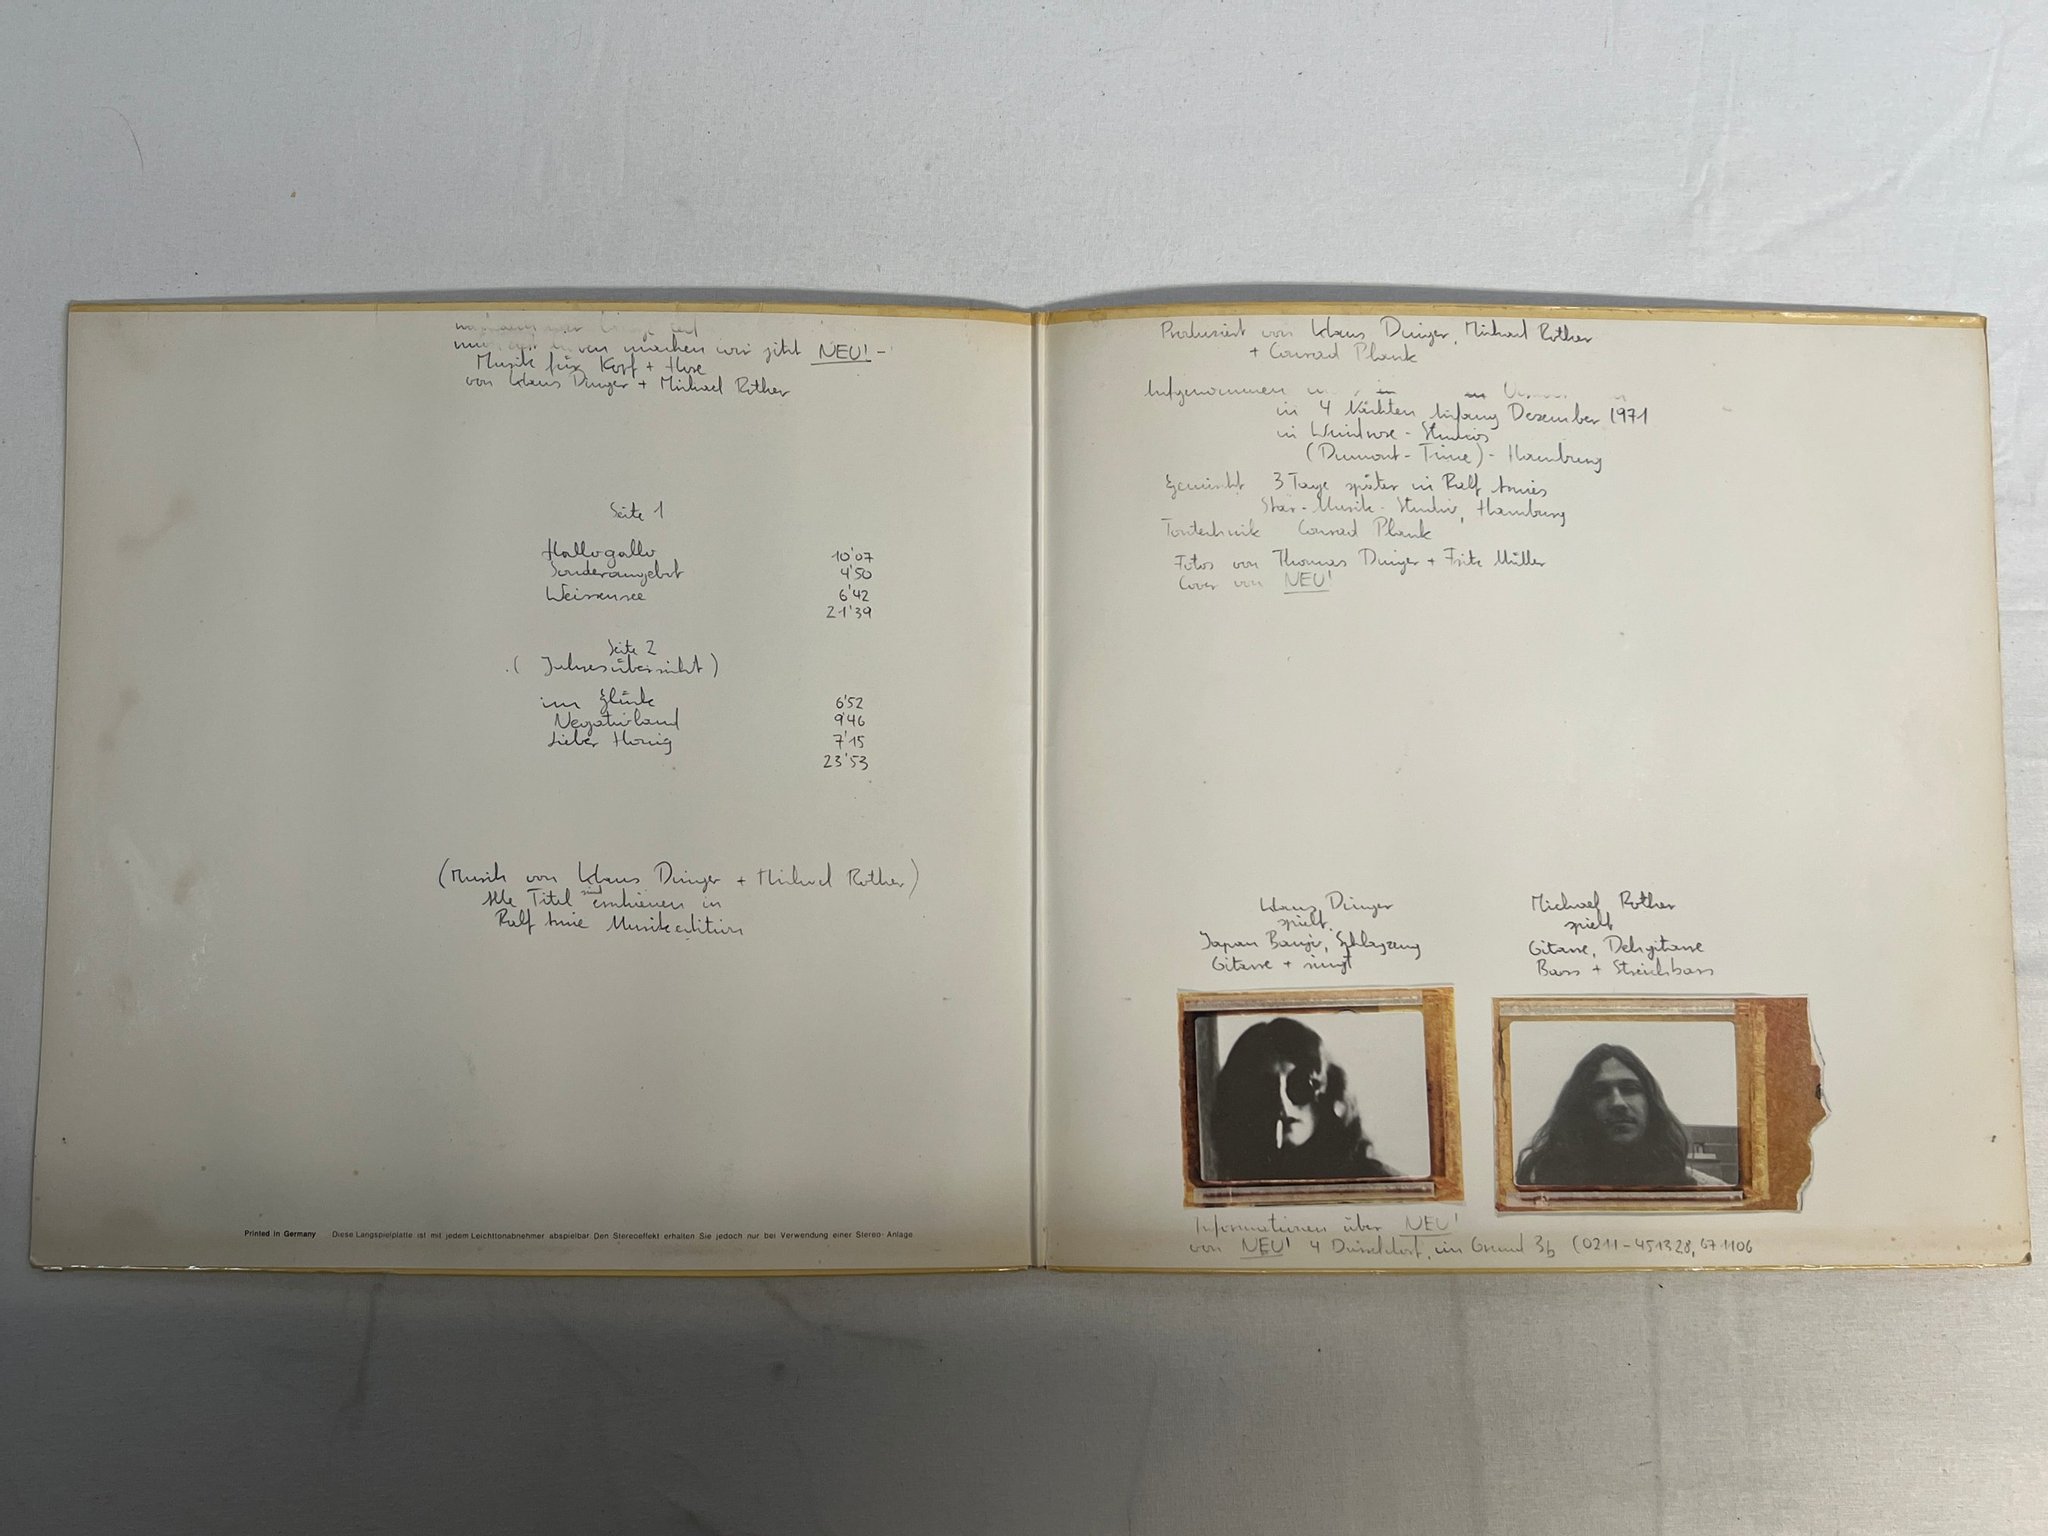 machen wir jetzt NEU! -
Musik für Kopf + Hose
von Klaus Dinger + Michael Rother
Seite 1
Hallogallo 10'07
Sonderangebot 4'50
Weissensee 6'42
21'39
Seite 2
(Jahresübersicht)
im Glück 6'52
Negativland 9'46
Lieber Honig 7'15
23'53
(Musik von Klaus Dinger + Michael Rother)
Alle Titel sind erschienen in
Ralf Arnie Musikedition
Printed in Germany Diese Langspielplatte ist mit jedem Leichttonabnehmer abspielbar Den Stereoeffekt erhalten Sie jedoch nur bei Verwendung einer Stereo-Anlage
Produziert von Klaus Dinger, Michael Rother
+ Conrad Plank
Aufgenommen
in 4 Nächten Anfang Dezember 1971
in Windrose - Studios
(Dumont - Time) - Hamburg
Gemischt 3 Tage später in Ralf Arnies
Star - Musik - Studio, Hamburg
Tontechnik Conrad Plank
Fotos von Thomas Dinger + Fritz Müller
Cover von NEU!
Klaus Dinger
spielt
Japan Banjo, Schlagzeug
Gitarre + singt
Michael Rother
spielt
Gitarre, Dehgitarre
Bass + Streichbass
Informationen über NEU!
von NEU! 4 Düsseldorf, im Grund 3b (0211-451328, 671106